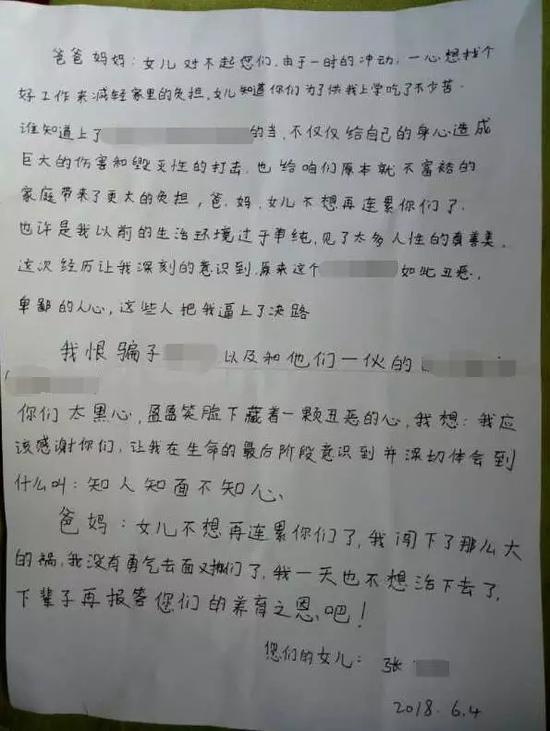 爸爸妈妈：女儿对不起您们，由于一时的冲动，一心想找个
好工作来减轻家里的负担，女儿知道你们为了供我上学吃了不少苦.
谁知道上了的当，不仅仅给自己的身心造成
巨大的伤害和毁灭性的打击，也给咱们原本就不富裕的
家庭带来了更大的负担，爸，妈，女儿不想再连累你们了.
也许是我以前的生活环境过于单纯，见了太多人性的真善美，
这次经历让我深刻的意识到，原来这个如此丑恶，
卑鄙的人心，这些人把我逼上了决路
我恨骗子以及和他们一伙的
你们太黑心，盈盈笑脸下藏着一颗丑恶的心，我想：我应
该感谢你们，让我在生命的最后阶段意识到并深切体会到
什么叫：知人知面不知心、
爸妈：女儿不想再连累你们了，我闯下了那么大
的祸，我没有勇气去面对们了，我一天也不想活下去了，
下辈子再报答您们的养育之恩、吧！
您们的女儿：张
2018.6.4